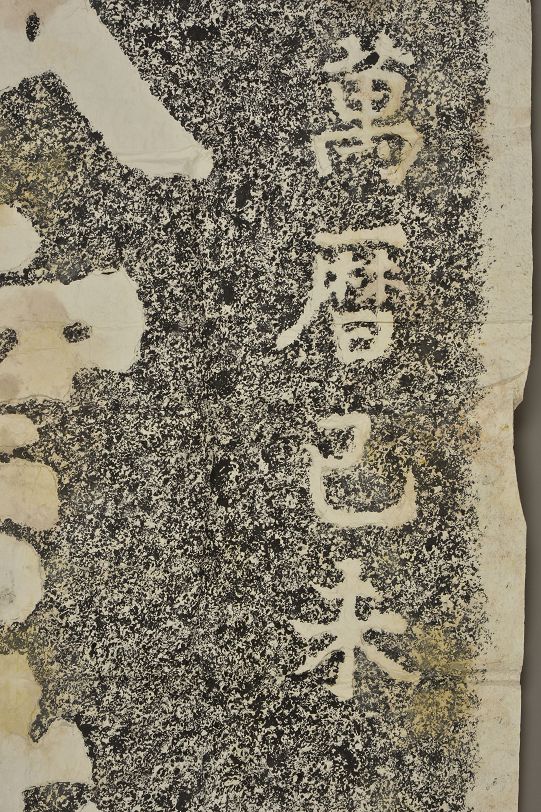 萬曆己未